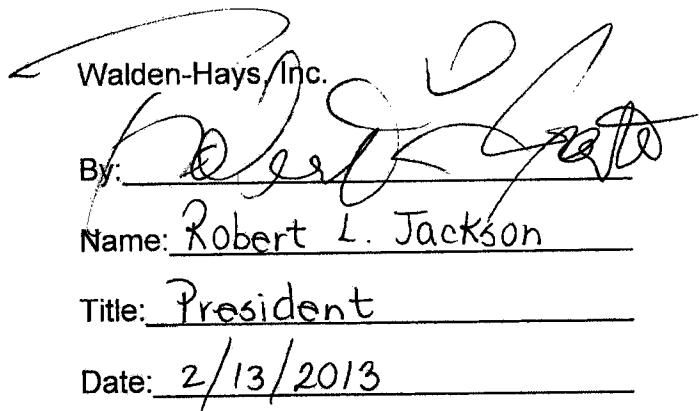 Walden-Hays, Inc.
By:
Name: Robert L. Jackson
Title: President
Date: 2/13/2013